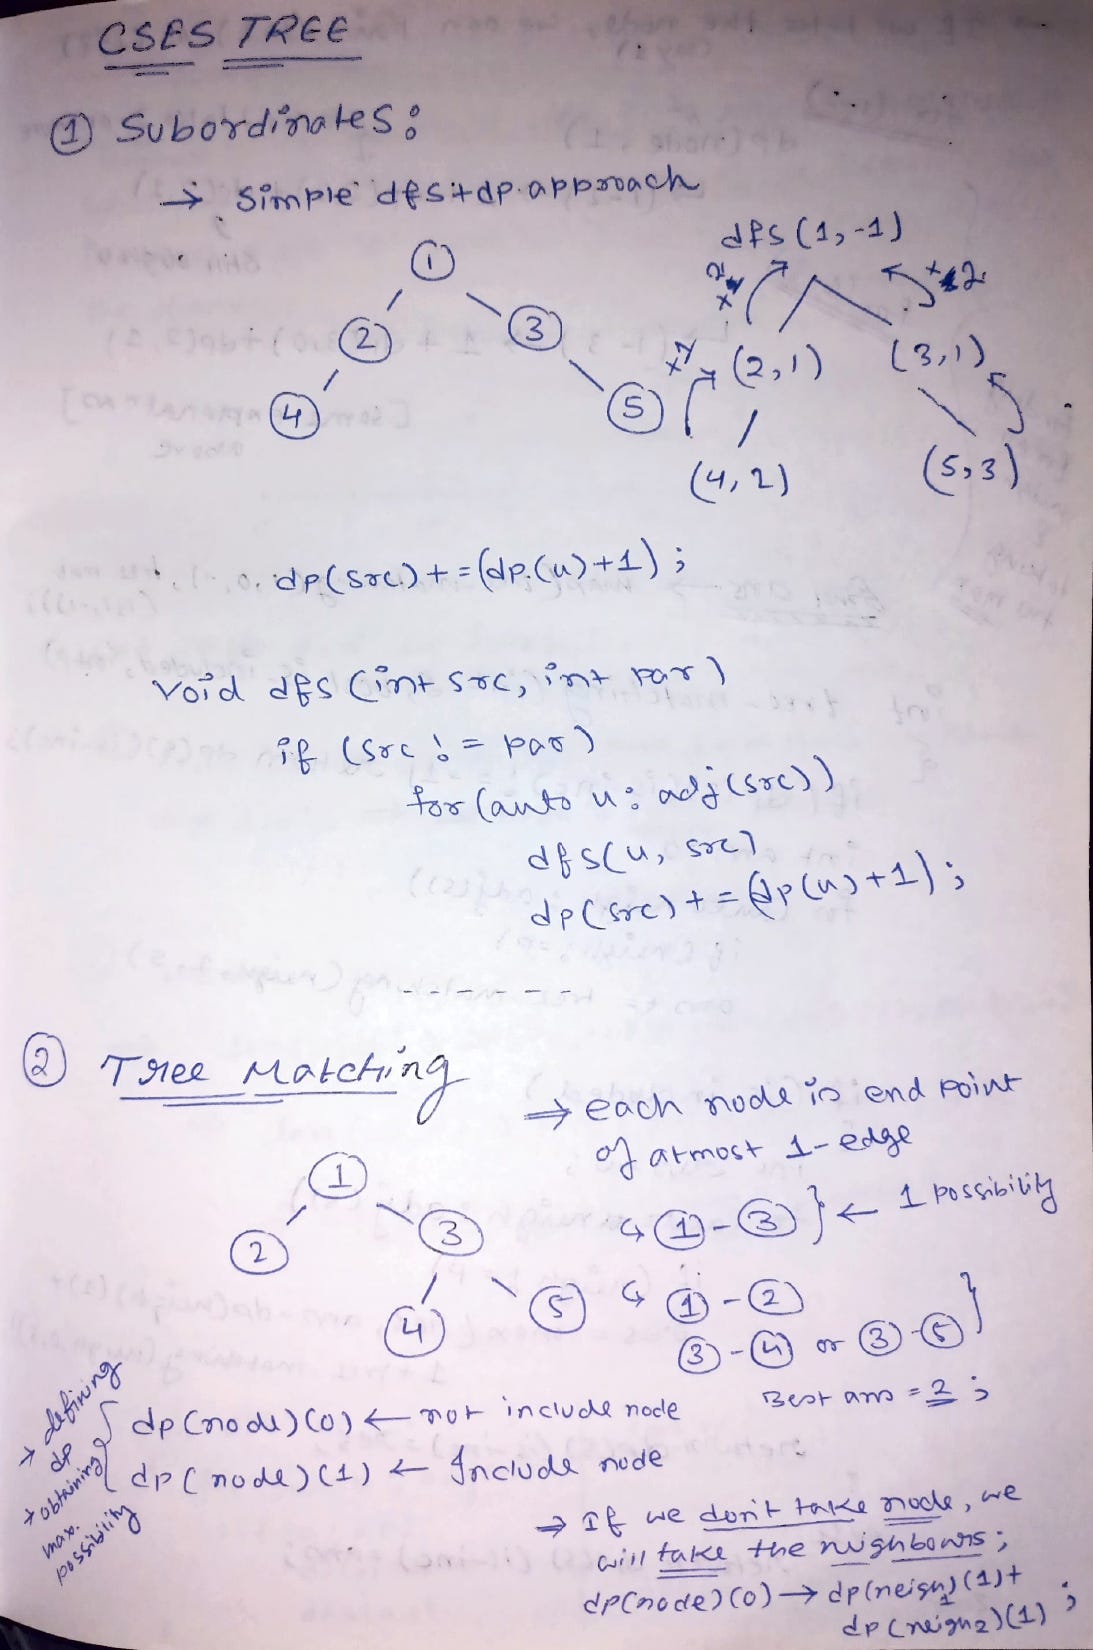 CSES TREE
① Subordinates:
→ simple dfs+dp approach
dfs(1,-1)
①
② ③
④ ⑤
+2
(2,1) (3,1)
(4,2) (5,3)
dp(src)+=(dp(u)+1);
void dfs(int src, int par)
if (src != par)
for(auto u: adj(src))
dfs(u, src)
dp(src)+=(dp(u)+1);
- - - - - - -
② Tree Matching
⇒ each node is end point
of atmost 1-edge
①
② ③
④ ⑤
↳ ①-③ } ← 1 possibility
↳ ①-②
③-④ or ③-⑤ }
Best ans = 2;
→ defining
dp
→ obtaining
max.
possibility
{ dp(node)(0) ← not include node
dp(node)(1) ← Include node
⇒ If we don't take node, we
will take the neighbours;
dp(node)(0) → dp(neigh1)(1)+
dp(neigh2)(1) ;